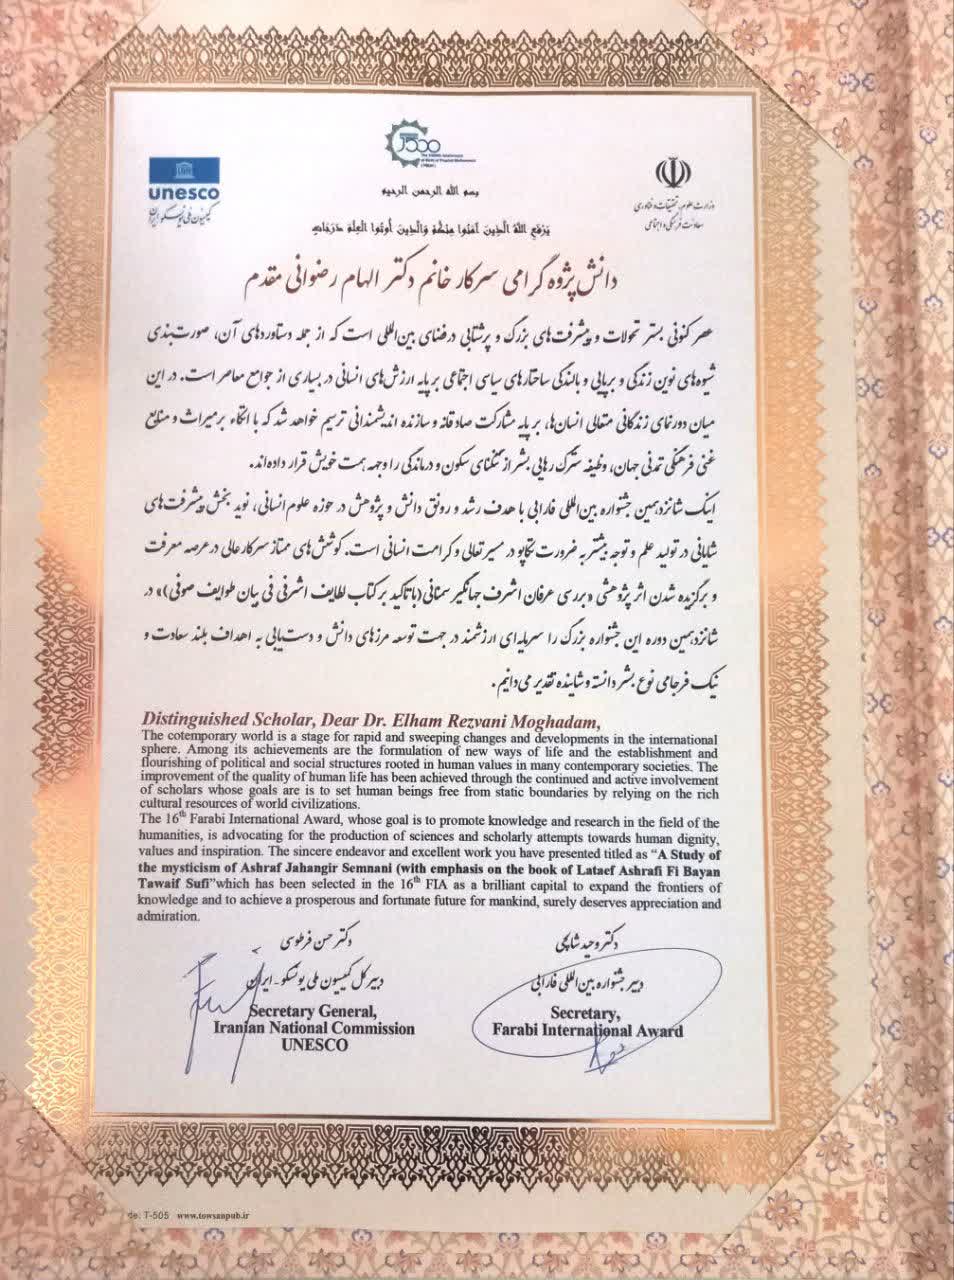 unesco
کمیسیون ملی یونسکو ایران
1500
The 1500th Anniversary
of Birth of Prophet Mohammad
وزارت علوم، تحقیقات و فناوری
معاونت فرهنگی و اجتماعی
بسم الله الرحمن الرحیم
یَرْفَعِ اللهُ الَّذِینَ آمَنُوا مِنْکُمْ وَالَّذِینَ أُوتُوا الْعِلْمَ دَرَجَاتٍ
دانش‌پژوه گرامی سرکار خانم دکتر الهام رضوانی مقدم
عصر کنونی بستر تحولات و پیشرفت‌های بزرگ و پرشتابی در فضای بین‌المللی است که از جمله دستاوردهای آن، صورت‌بندی
شیوه‌های نوین زندگی و برپایی و بالندگی ساختارهای سیاسی اجتماعی بر پایه ارزش‌های انسانی در بسیاری از جوامع معاصر است. در این
میان دورنمای زندگانی متعالی انسان‌ها، بر پایه مشارکت صادقانه و سازنده اندیشمندانی ترسیم خواهد شد که با اتکاء بر میراث و منابع
غنی فرهنگی تمدنی جهان، وظیفه سترگ رهایی بشر از تنگنای سکون و درماندگی را وجهه همت خویش قرار داده‌اند.
اینک شانزدهمین جشنواره بین‌المللی فارابی با هدف رشد و رونق دانش و پژوهش در حوزه علوم انسانی، نوید بخش پیشرفت‌های
شایانی در تولید علم و توجه بیشتر به ضرورت تکاپو در مسیر تعالی و کرامت انسانی است. کوشش‌های ممتاز سرکار عالی در عرصه معرفت
و برگزیده شدن اثر پژوهشی «بررسی عرفان اشرف جهانگیر سمنانی(با تاکید بر کتاب لطایف اشرفی فی بیان طوایف صوفی)» در
شانزدهمین دوره این جشنواره بزرگ را سرمایه‌ای ارزشمند در جهت توسعه مرزهای دانش و دست‌یابی به اهداف بلند سعادت و
نیک فرجامی نوع بشر دانسته و شاینده تقدیر می‌دانیم.
Distinguished Scholar, Dear Dr. Elham Rezvani Moghadam,
The cotemporary world is a stage for rapid and sweeping changes and developments in the international
sphere. Among its achievements are the formulation of new ways of life and the establishment and
flourishing of political and social structures rooted in human values in many contemporary societies. The
improvement of the quality of human life has been achieved through the continued and active involvement
of scholars whose goals are is to set human beings free from static boundaries by relying on the rich
cultural resources of world civilizations.
The 16th Farabi International Award, whose goal is to promote knowledge and research in the field of the
humanities, is advocating for the production of sciences and scholarly attempts towards human dignity,
values and inspiration. The sincere endeavor and excellent work you have presented titled as “A Study of
the mysticism of Ashraf Jahangir Semnani (with emphasis on the book of Lataef Ashrafi Fi Bayan
Tawaif Sufi”which has been selected in the 16th FIA as a brilliant capital to expand the frontiers of
knowledge and to achieve a prosperous and fortunate future for mankind, surely deserves appreciation and
admiration.
دکتر وحید شالچی
دبیر جشنواره بین‌المللی فارابی
Secretary,
Farabi International Award
دکتر حسن فرطوسی
دبیر کل کمیسیون ملی یونسکو - ایران
Secretary General,
Iranian National Commission
UNESCO
de: T-505 www.towsanpub.ir